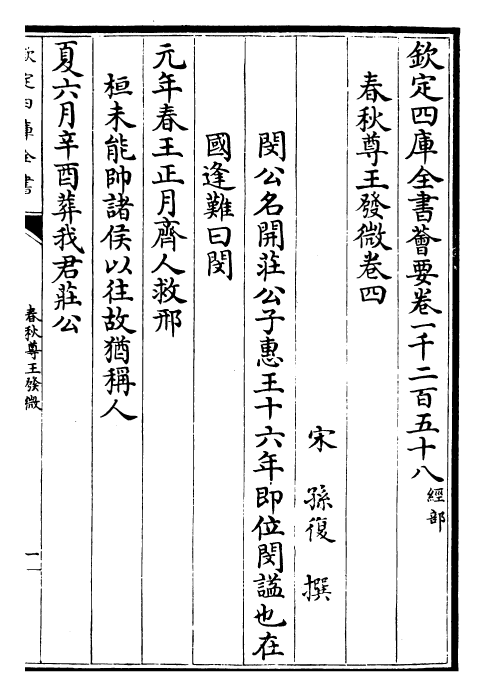 欽定四庫全書薈要卷一千二百五十八經部
春秋尊王發微卷四
宋 孫復 撰
閔公名開莊公子惠王十六年即位閔諡也在
國逢難曰閔
元年春王正月齊人救邢
桓未能帥諸侯以往故猶稱人
夏六月辛酉葬我君莊公
欽定四庫全書
春秋尊王發微
一